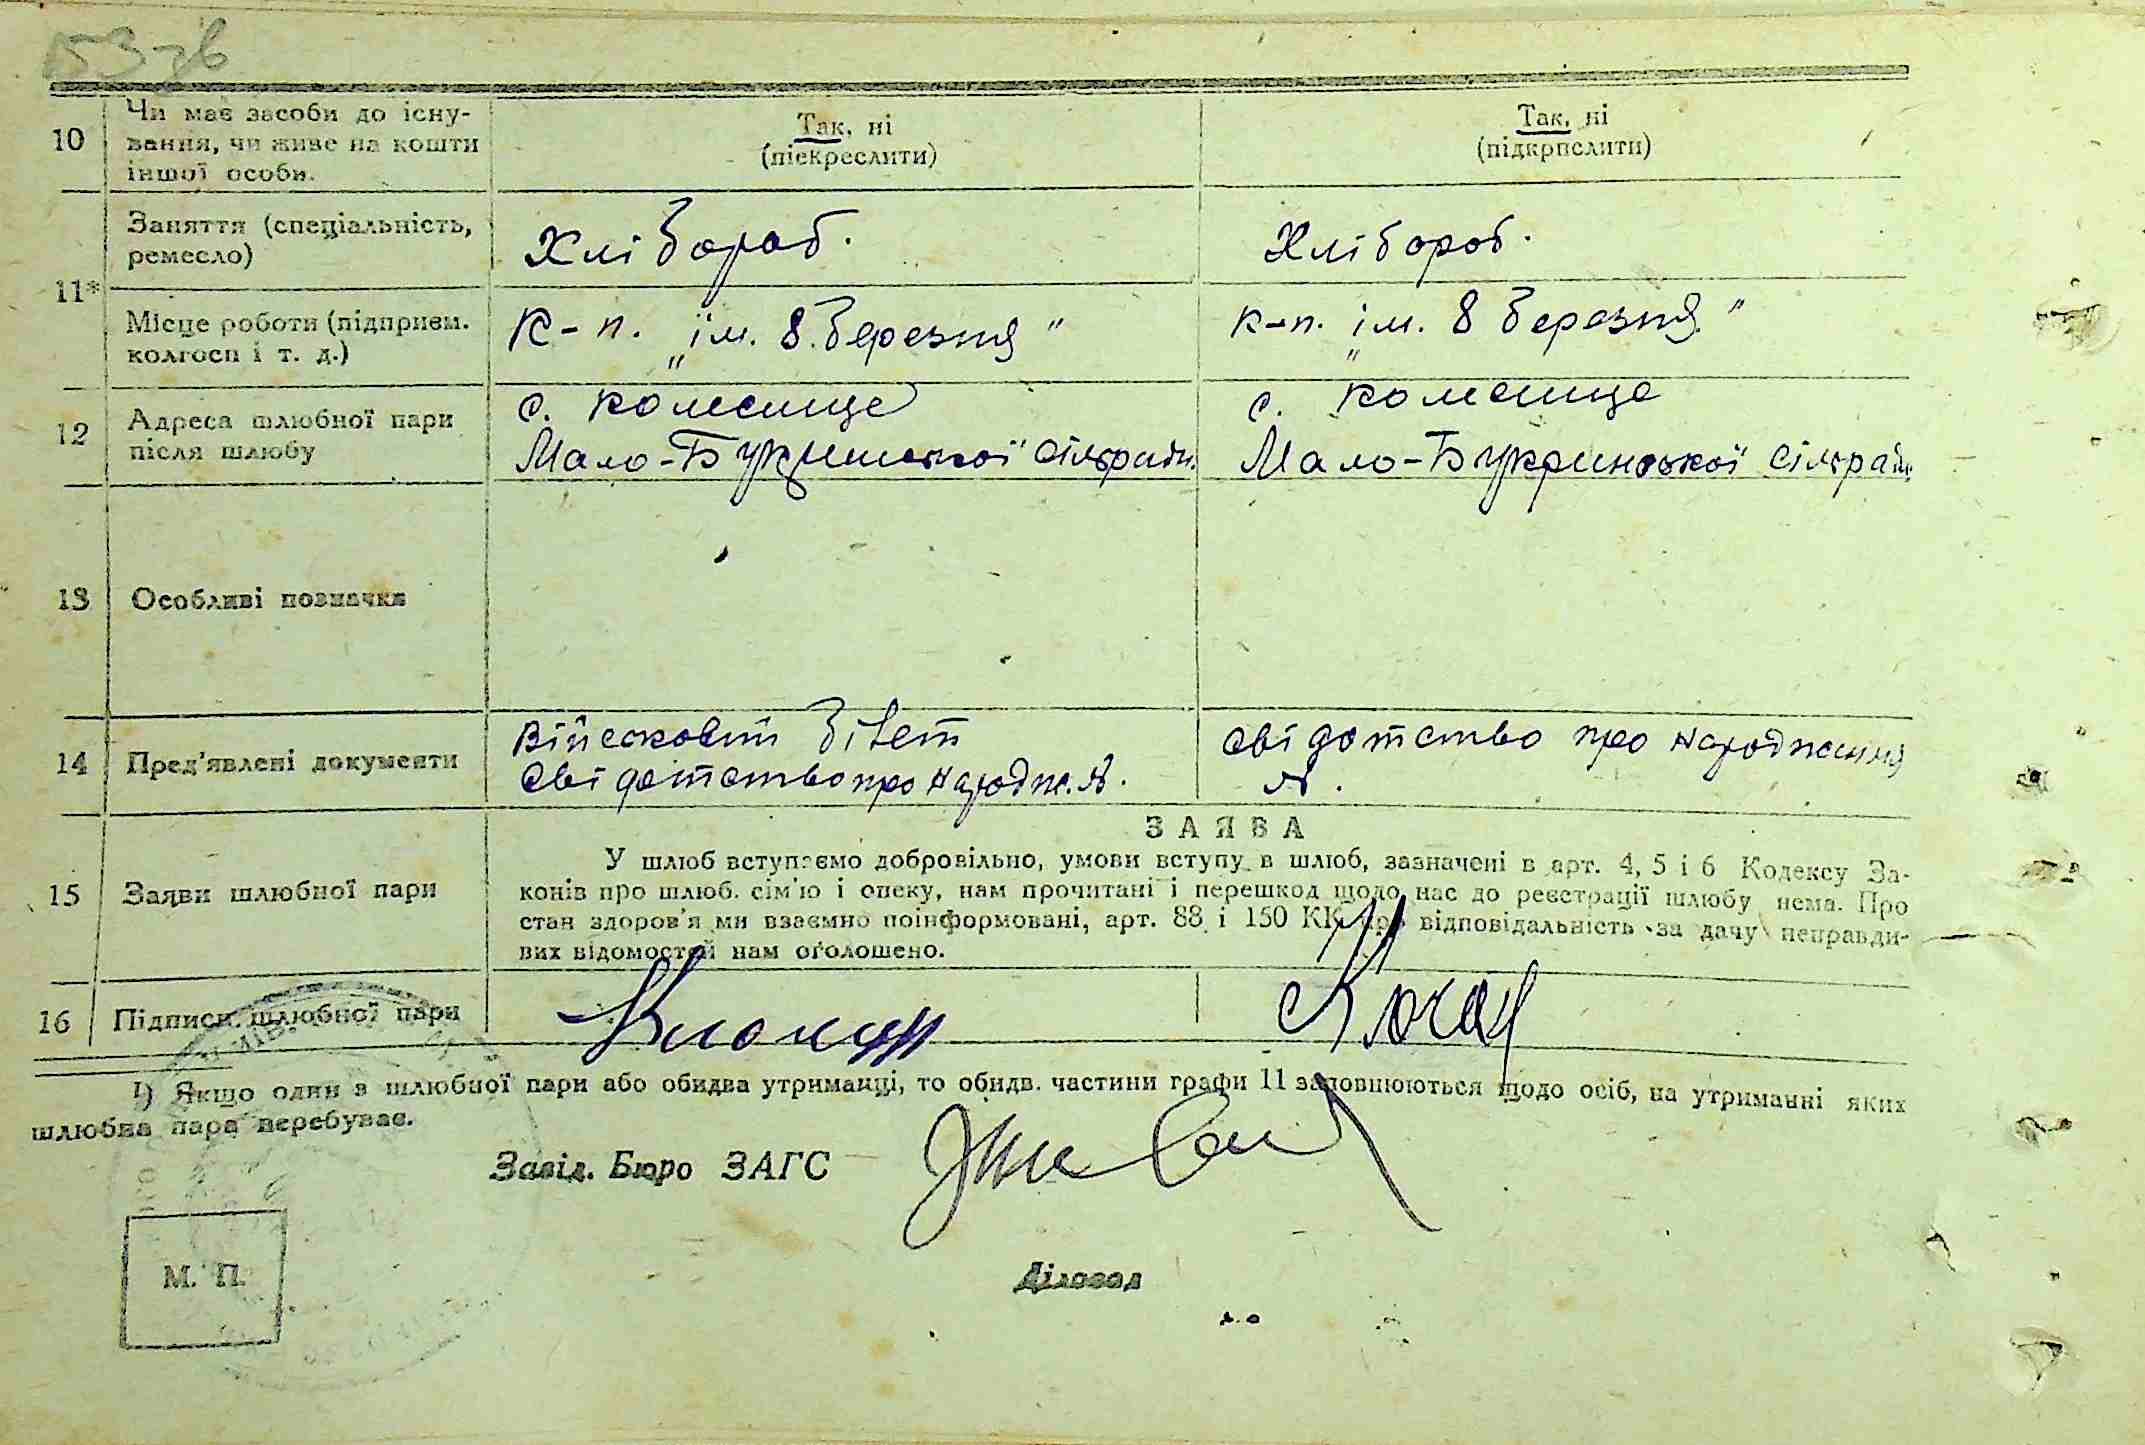 153 зв
10 Чи має засоби до існу-
вання, чи живе на кошти
іншої особи.
Так, ні
(піекреслити)
Так, ні
(підкрпслити)
11*
Заняття (спеціальність,
ремесло)
Хлібороб.
Хлібороб.
Місце роботи (підприєм.
колгосп і т. д.)
К-п. „ім. 8. березня"
к-п. „ім. 8 березня"
12 Адреса шлюбної пари
після шлюбу
с. Колесище
Мало-Букринської сільради.
с. Колесище
Мало-Букринської сільради
13 Особливі позначки
14 Пред'явлені документи
Військовий білет
свідотство про народж. я.
свідотство про народження
я.
15 Заяви шлюбної пари
ЗАЯВА
У шлюб вступаємо добровільно, умови вступу в шлюб, зазначені в арт. 4, 5 і 6 Кодексу За-
конів про шлюб. сім'ю і опеку, нам прочитані і перешкод щодо нас до реєстрації шлюбу нема. Про
стан здоров'я ми взаємно поінформовані, арт. 88 і 150 КК про відповідальність за дачу неправди-
вих відомостей нам оголошено.
16 Підписи шлюбної пари
1) Якщо один з шлюбної пари або обидва утриманці, то обидв. частини графи 11 заповнюються щодо осіб, на утриманні яких
шлюбна пара перебуває.
Завід. Бюро ЗАГС
М. П.
Діловод